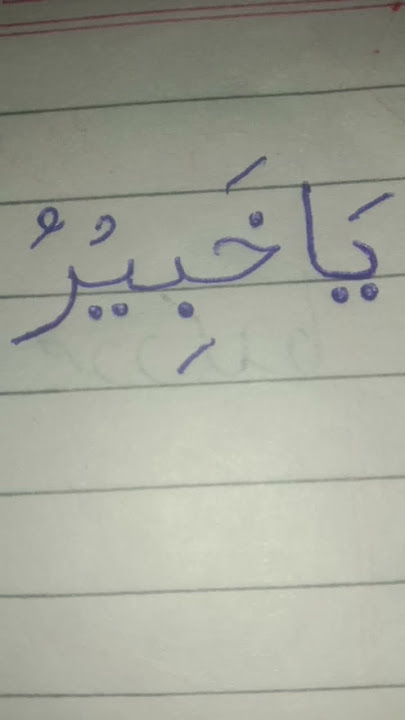 يَا خَبِيْرُ